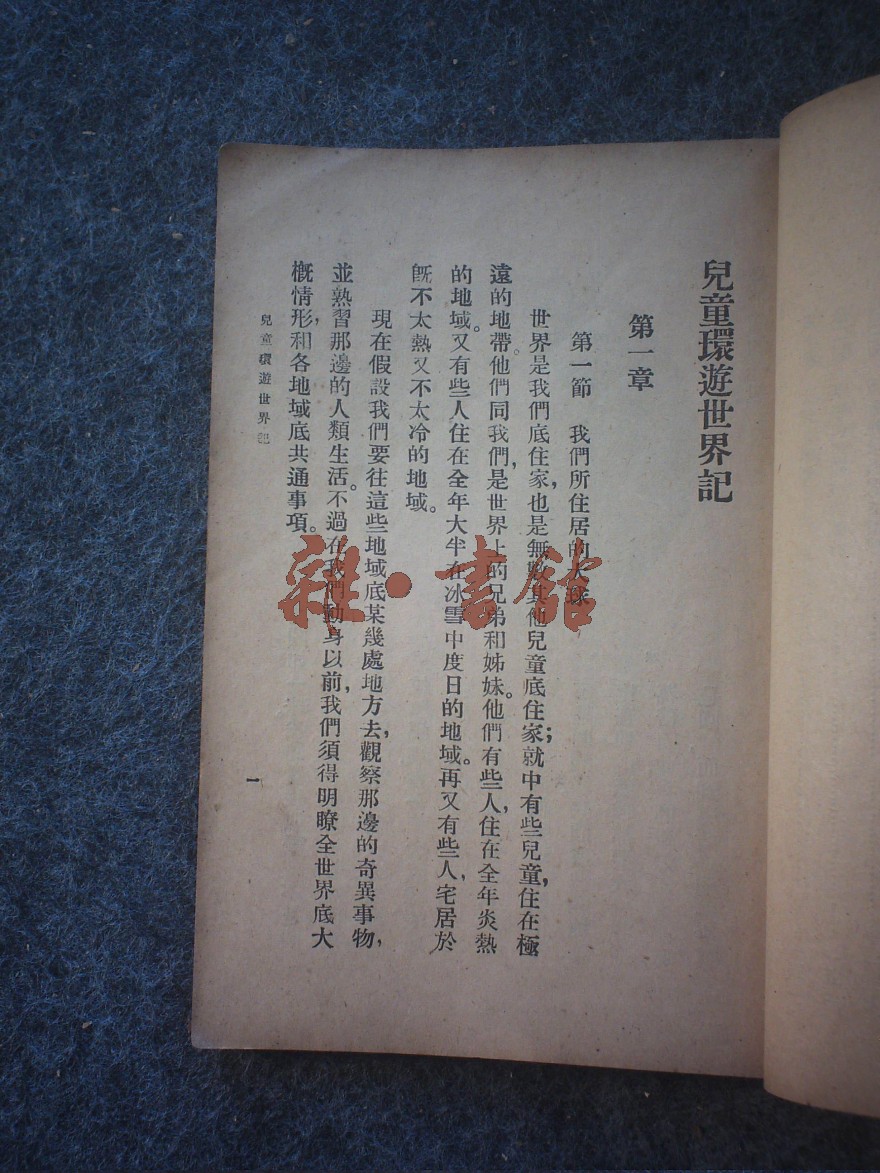 兒童環遊世界記
第一章
第一節　我們所住居的大球
世界是我們底住家,也是無數其他兒童底住家;就中有些兒童,住在極
遠的地帶。他們同我們,是世界上的兄弟和姊妹。他們有些人,住在全年炎熱
的地域。又有些人住在全年大半在冰雪中度日的地域。再又有些人,宅居於
旣不太熱又不太冷的地域。
現在假設我們要往這些地域底某幾處地方去,觀察那邊的奇異事物,
並熟習那邊的人類生活。不過在我們動身以前,我們須得明瞭全世界底大
概情形,和各地域底共通事項。
兒童環遊世界記
一
雜·書館